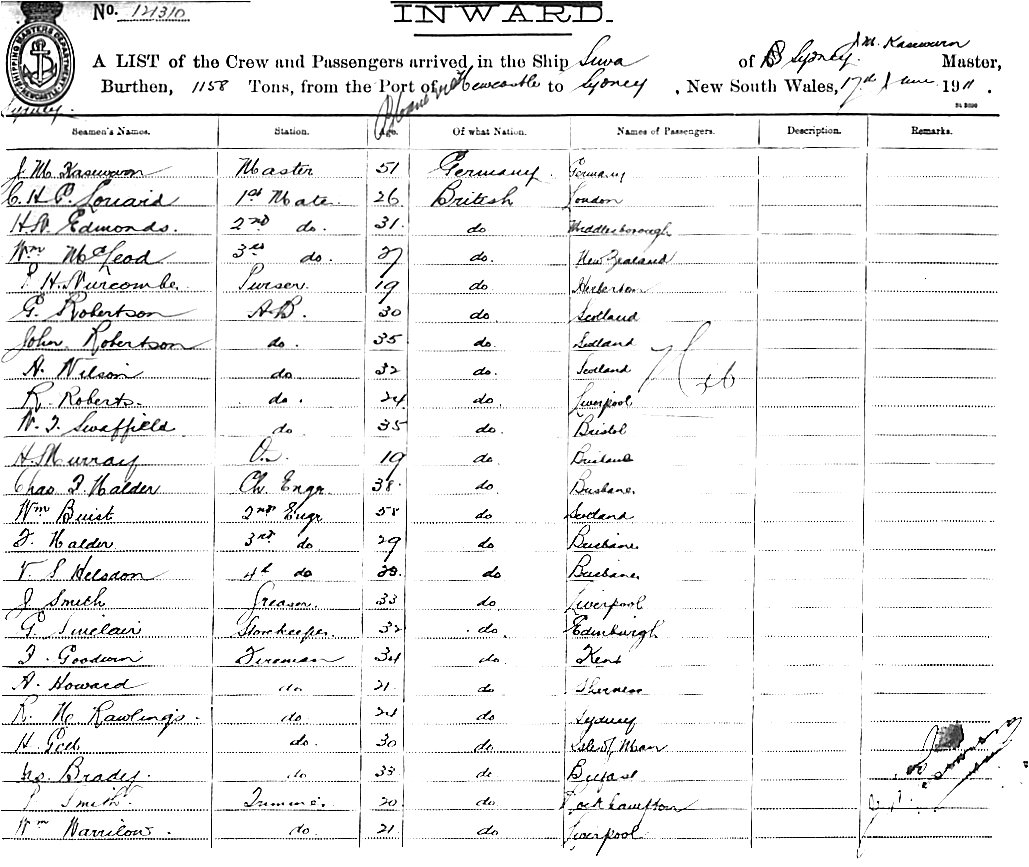 No. 121310
INWARD.
SHIPPING MASTERS DEPARTMENT NEWCASTLE
J. M. Kasuwurn
A LIST of the Crew and Passengers arrived in the Ship Suva of Sydney Master,
Burthen, 1158 Tons, from the Port of Newcastle to Sydney, New South Wales, 17th June 1911.
Sydney.
Seamen's Names. Station. Age. Of what Nation. Names of Passengers. Description. Remarks.
Master 51 Germany. Germany
1st Mate 26 British London
H. W. Edmonds. 2nd do. 31. do Middlesborough
Wm McLeod 3rd do. 27 do. New Zealand
H. Nurcombe. Purser. 19 do. Herberton
G. Robertson A.B. 30 do. Scotland
John Robertson do. 35 do. Scotland
N. Wilson do 32 do. Scotland
R. Roberts. do. 24 do. Liverpool
W. J. Swaffield do 35 do. Bristol
H. Murray O.S. 19 do. Brisbane
Chas. F. Halder Ch. Engr. 38 do Brisbane
Wm Buist 2nd Engr 58 do Scotland
F. Halder 3rd do 29 do Brisbane
V. S Helsdon 4th do do Brisbane
J Smith Greaser. 33 do Liverpool
G. Sinclair Storekeeper. 32 do. Edinburgh
F. Goodwin Fireman 34 do. Kent
A. Howard do 21 do Sheerness
R. H. Rawlings. do 24 do Sydney
H. Geel do. 30 do Isle of Man
Jas. Brady. do 33 do Belfast
Smith Trimmer. 20 do Rockhampton
Wm Warrilow. do 21 do Liverpool